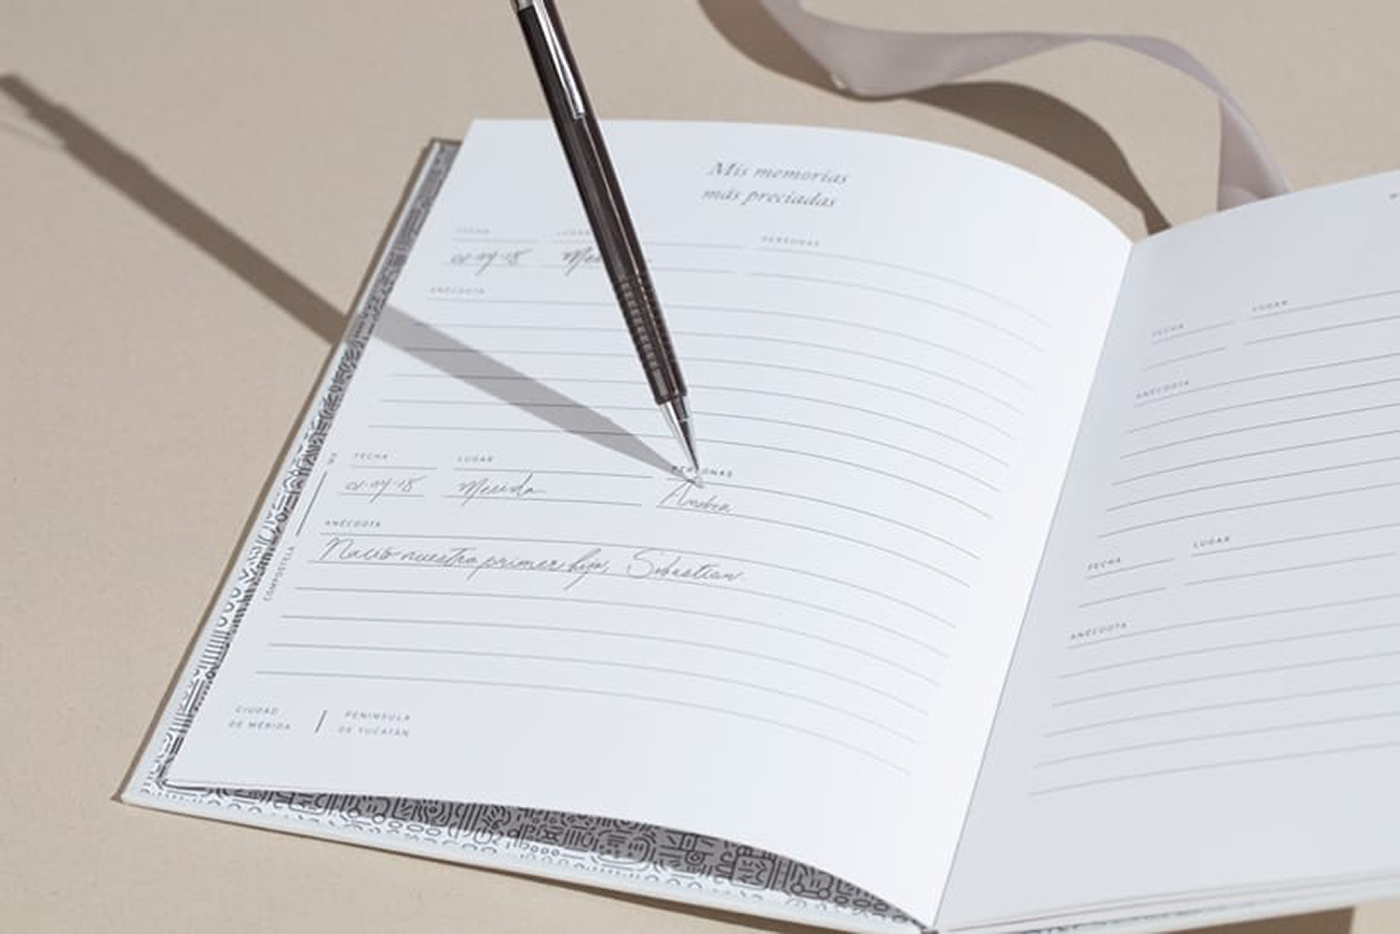 Mis memorias
más preciadas
FECHA LUGAR PERSONAS
01-04-18
ANÉCDOTA
FECHA LUGAR PERSONAS
01-04-18 Merida Andrea
ANÉCDOTA
Nació nuestro primer hijo, Sebastian.
CIUDAD
DE MÉRIDA
PENÍNSULA
DE YUCATÁN
COMPOSTELA
FECHA LUGAR
ANÉCDOTA
FECHA LUGAR
ANÉCDOTA